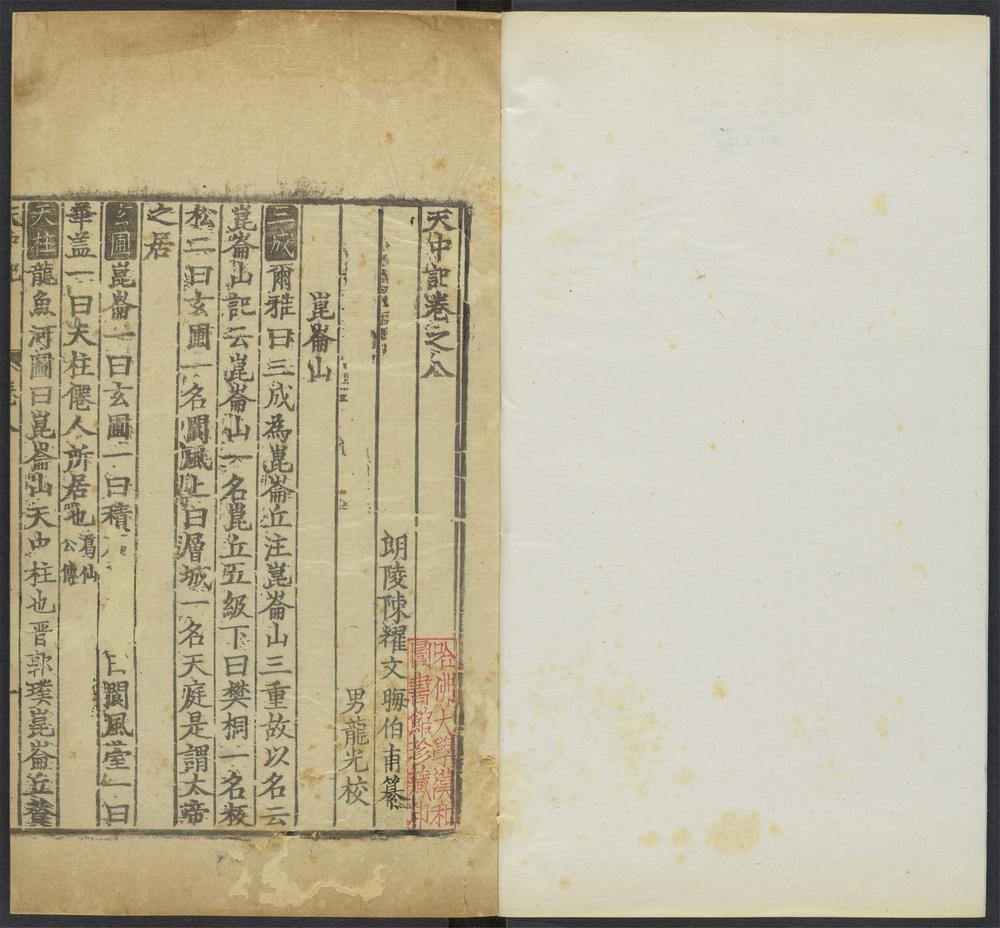 天中記卷之八
朗陵陳耀文晦伯甫纂
男龍光校
崑崙山
三成爾雅曰三成為崑崙丘注崑崙山三重故以名云
崑崙山記云崑崙山一名崑丘五級下曰樊桐一名板
松二曰玄圃一名閬風上曰層城一名天庭是謂太帝
之居
玄圃崑崙一曰玄圃二曰積 曰閬風臺一曰
華盖一曰天柱僊人所居也葛仙公傳
天柱龍魚河圖曰崑崙山天中柱也晋郭璞崑崙丘賛
天中記
哈佛大學漢和
圖書館珍藏印